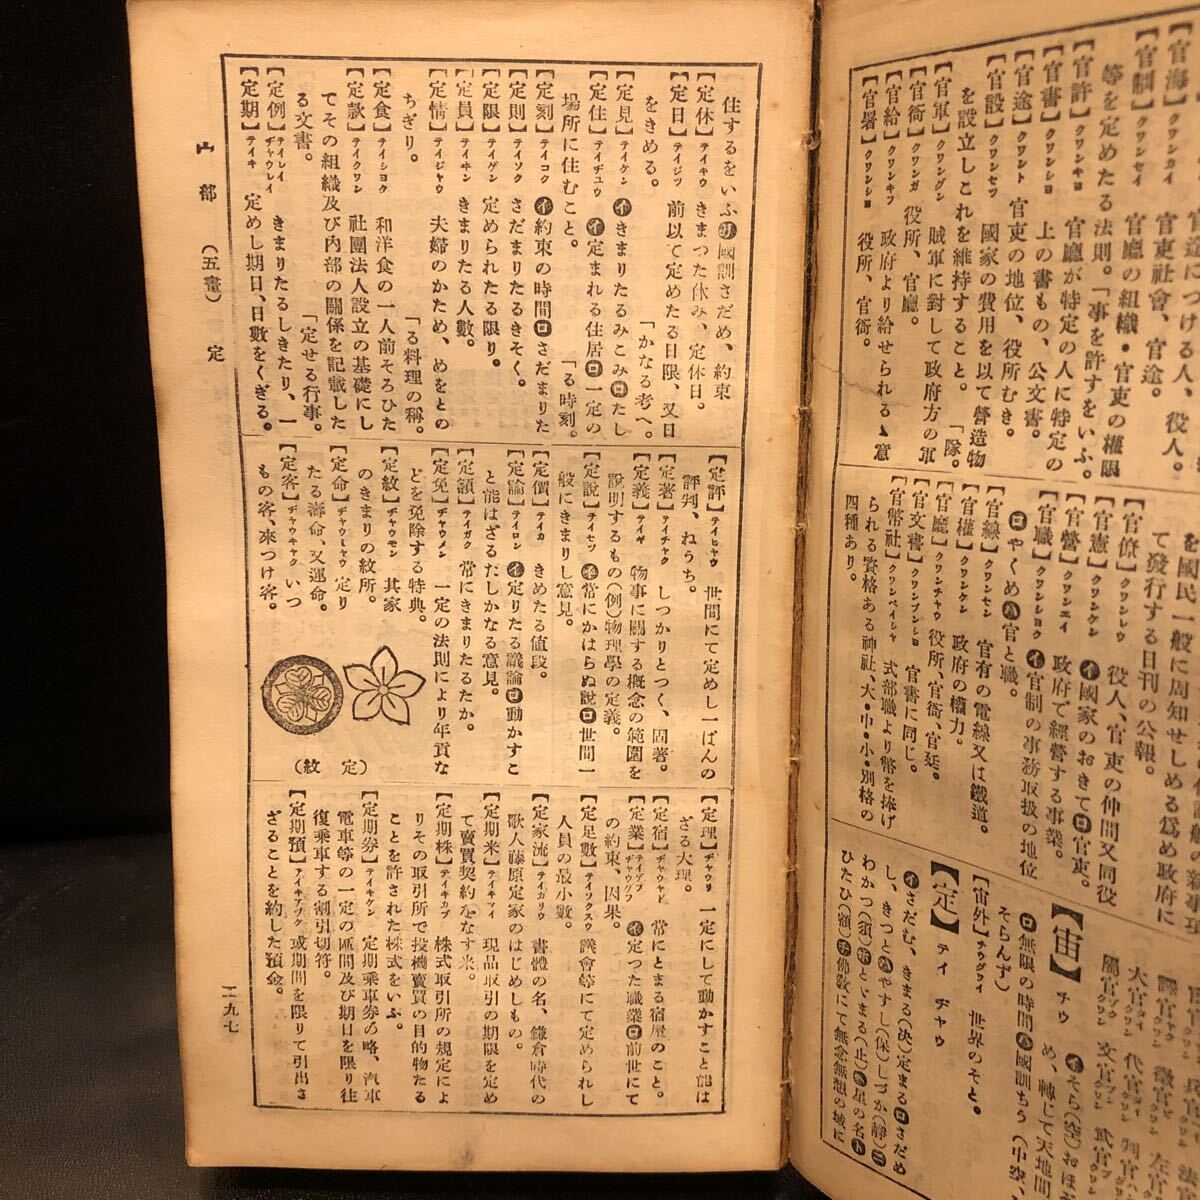 【官海】クワンカイ
【官制】クワンセイ 官廳の組織・官吏の權限
等を定めたる法則。「事を許すをいふ。
【官許】クワンキヨ 官廳が特定の人に特定の
【官書】クワンシヨ 上の書もの、公文書。
【官途】クワント 官吏の地位、役所むき。
【官設】クワンセツ 國家の費用を以て營造物
を設立しこれを維持すること。「隊。
【官軍】クワングン 賊軍に對して政府方の軍
【官衙】クワンガ 役所、官廳。
【官給】クワンキフ 政府より給せられる意
【官署】クワンシヨ 役所、官衙。
を國民一般に周知せしめる爲め政府に
て發行する日刊の公報。
【官僚】クワンレウ 役人、官吏の仲間又同役
【官憲】クワンケン ㋑國家のおきて㋺官吏。
【官營】クワンエイ 政府で經營する事業。
【官職】クワンシヨク ㋑官制の事務取扱の地位
㋺やくめ㋩官と職。
【官線】クワンセン 官有の電線又は鐵道。
【官權】クワンケン 政府の權力。
【官廳】クワンチヤウ 役所、官衙、官廷。
【官文書】クワンブンシヨ 官書に同じ。
【官幣社】クワンペイシヤ 式部職より幣を捧げ
られる資格ある神社、大・中・小・別格の
四種あり。
【宙】チウ ㋑そら(空)おほ
め、轉じて天地間
㋺無限の時間㋩國訓ちう(中空、
そらんず)
【宙外】チウグワイ 世界のそと。
【定】テイ ヂヤウ
㋑さだむ、きまる(決)定まる㋺さだめ
し、きつと㋩やすし(保)しづか(靜)㋥
わかつ(須)㋭とゞまる(止)㋬星の名㋣
ひたひ(額)㋠佛敎にて無念無想の域に
住するをいふ㋷國訓さだめ、約束
【定休】テイキウ きまつた休み、定休日。
【定日】テイジツ 前以て定めたる日限、又日
をきめる。「かなる考へ。
【定見】テイケン ㋑きまりたるみこみ㋺たし
【定住】テイヂユウ ㋑定まれる住居㋺一定の
場所に住むこと。「る時刻。
【定刻】テイコク ㋑約束の時間㋺さだまりた
【定則】テイソク さだまりたるきそく。
【定限】テイゲン 定められたる限り。
【定員】テイヰン きまりたる人數。
【定情】テイジヤウ 夫婦のかため、めをとの
ちぎり。「る料理の稱。
【定食】テイシヨク 和洋食の一人前そろひた
【定款】テイクワン 社團法人設立の基礎にし
てその組織及び內部の關係を記載した
る文書。「定せる行事。
【定例】テイレイ ヂヤウレイ きまりたるしきたり、一
【定期】テイキ 定めし期日、日數をくぎる。
【定評】テイヒヤウ 世間にて定めし一ぱんの
評判、ねうち。
【定著】テイチヤク しつかりとつく、固著。
【定義】テイギ 物事に關する概念の範圍を
說明するもの(例)物理學の定義。
【定說】テイセツ ㋑常にかはらぬ說㋺世間一
般にきまりし意見。
【定價】テイカ きめたる値段。
【定論】テイロン ㋑定りたる議論㋺動かすこ
と能はざるたしかなる意見。
【定額】テイガク 常にきまりたるたか。
【定免】ヂヤウメン 一定の法則により年貢な
どを免除する特典。
【定紋】ヂヤウモン 其家
のきまりの紋所。
【定命】ヂヤウミヤウ 定り
たる壽命、又運命。
【定客】ヂヤウキヤク いつ
もの客、來つけ客。
(定紋)
【定理】ヂヤウリ 一定にして動かすこと能は
ざる大理。
【定宿】ヂヤウヤド 常にとまる宿屋のこと。
【定業】テイゲフ ヂヤウゴフ ㋑定つた職業㋺前世にて
の約束、因果。
【定足數】テイソクスウ 議會等にて定められし
人員の最小數。
【定家流】テイカリウ 書體の名、鎌倉時代の
歌人藤原定家のはじめしもの。
【定期米】テイキマイ 現品取引の期限を定め
て賣買契約をなす米。
【定期株】テイキカブ 株式取引所の規定によ
りその取引所で投機賣買の目的物たる
ことを許された株式をいふ。
【定期券】テイキケン 定期乘車券の略、汽車
電車等の一定の區間及び期日を限り往
復乘車する割引切符。
【定期預】テイキアヅケ 或期間を限りて引出さ
ざることを約した預金。
宀部 (五畫) 定
二九七